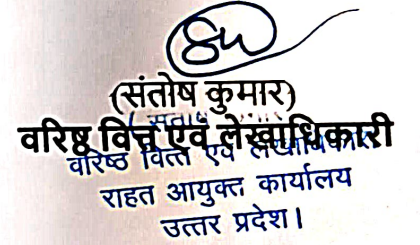 (संतोष कुमार)
वरिष्ठ वित्त एवं लेखाधिकारी
वरिष्ठ वित्त एवं
राहत आयुक्त कार्यालय
उत्तर प्रदेश।